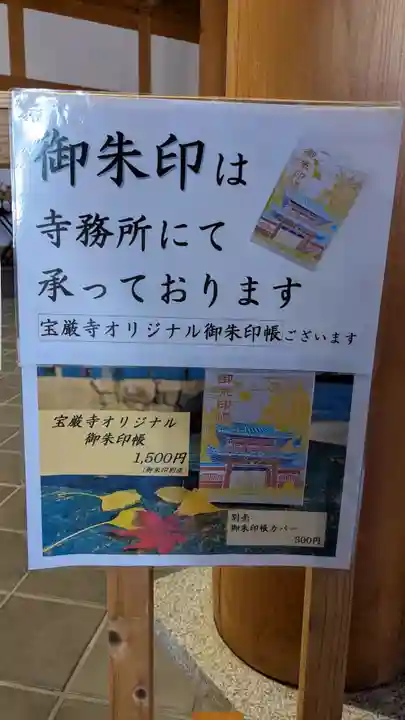 御朱印は
寺務所にて
承っております
宝厳寺オリジナル御朱印帳ございます
御朱印帳
宝厳寺オリジナル
御朱印帳
1,500円
(御朱印別途
御朱印帳
別売
御朱印帳カバー
500円